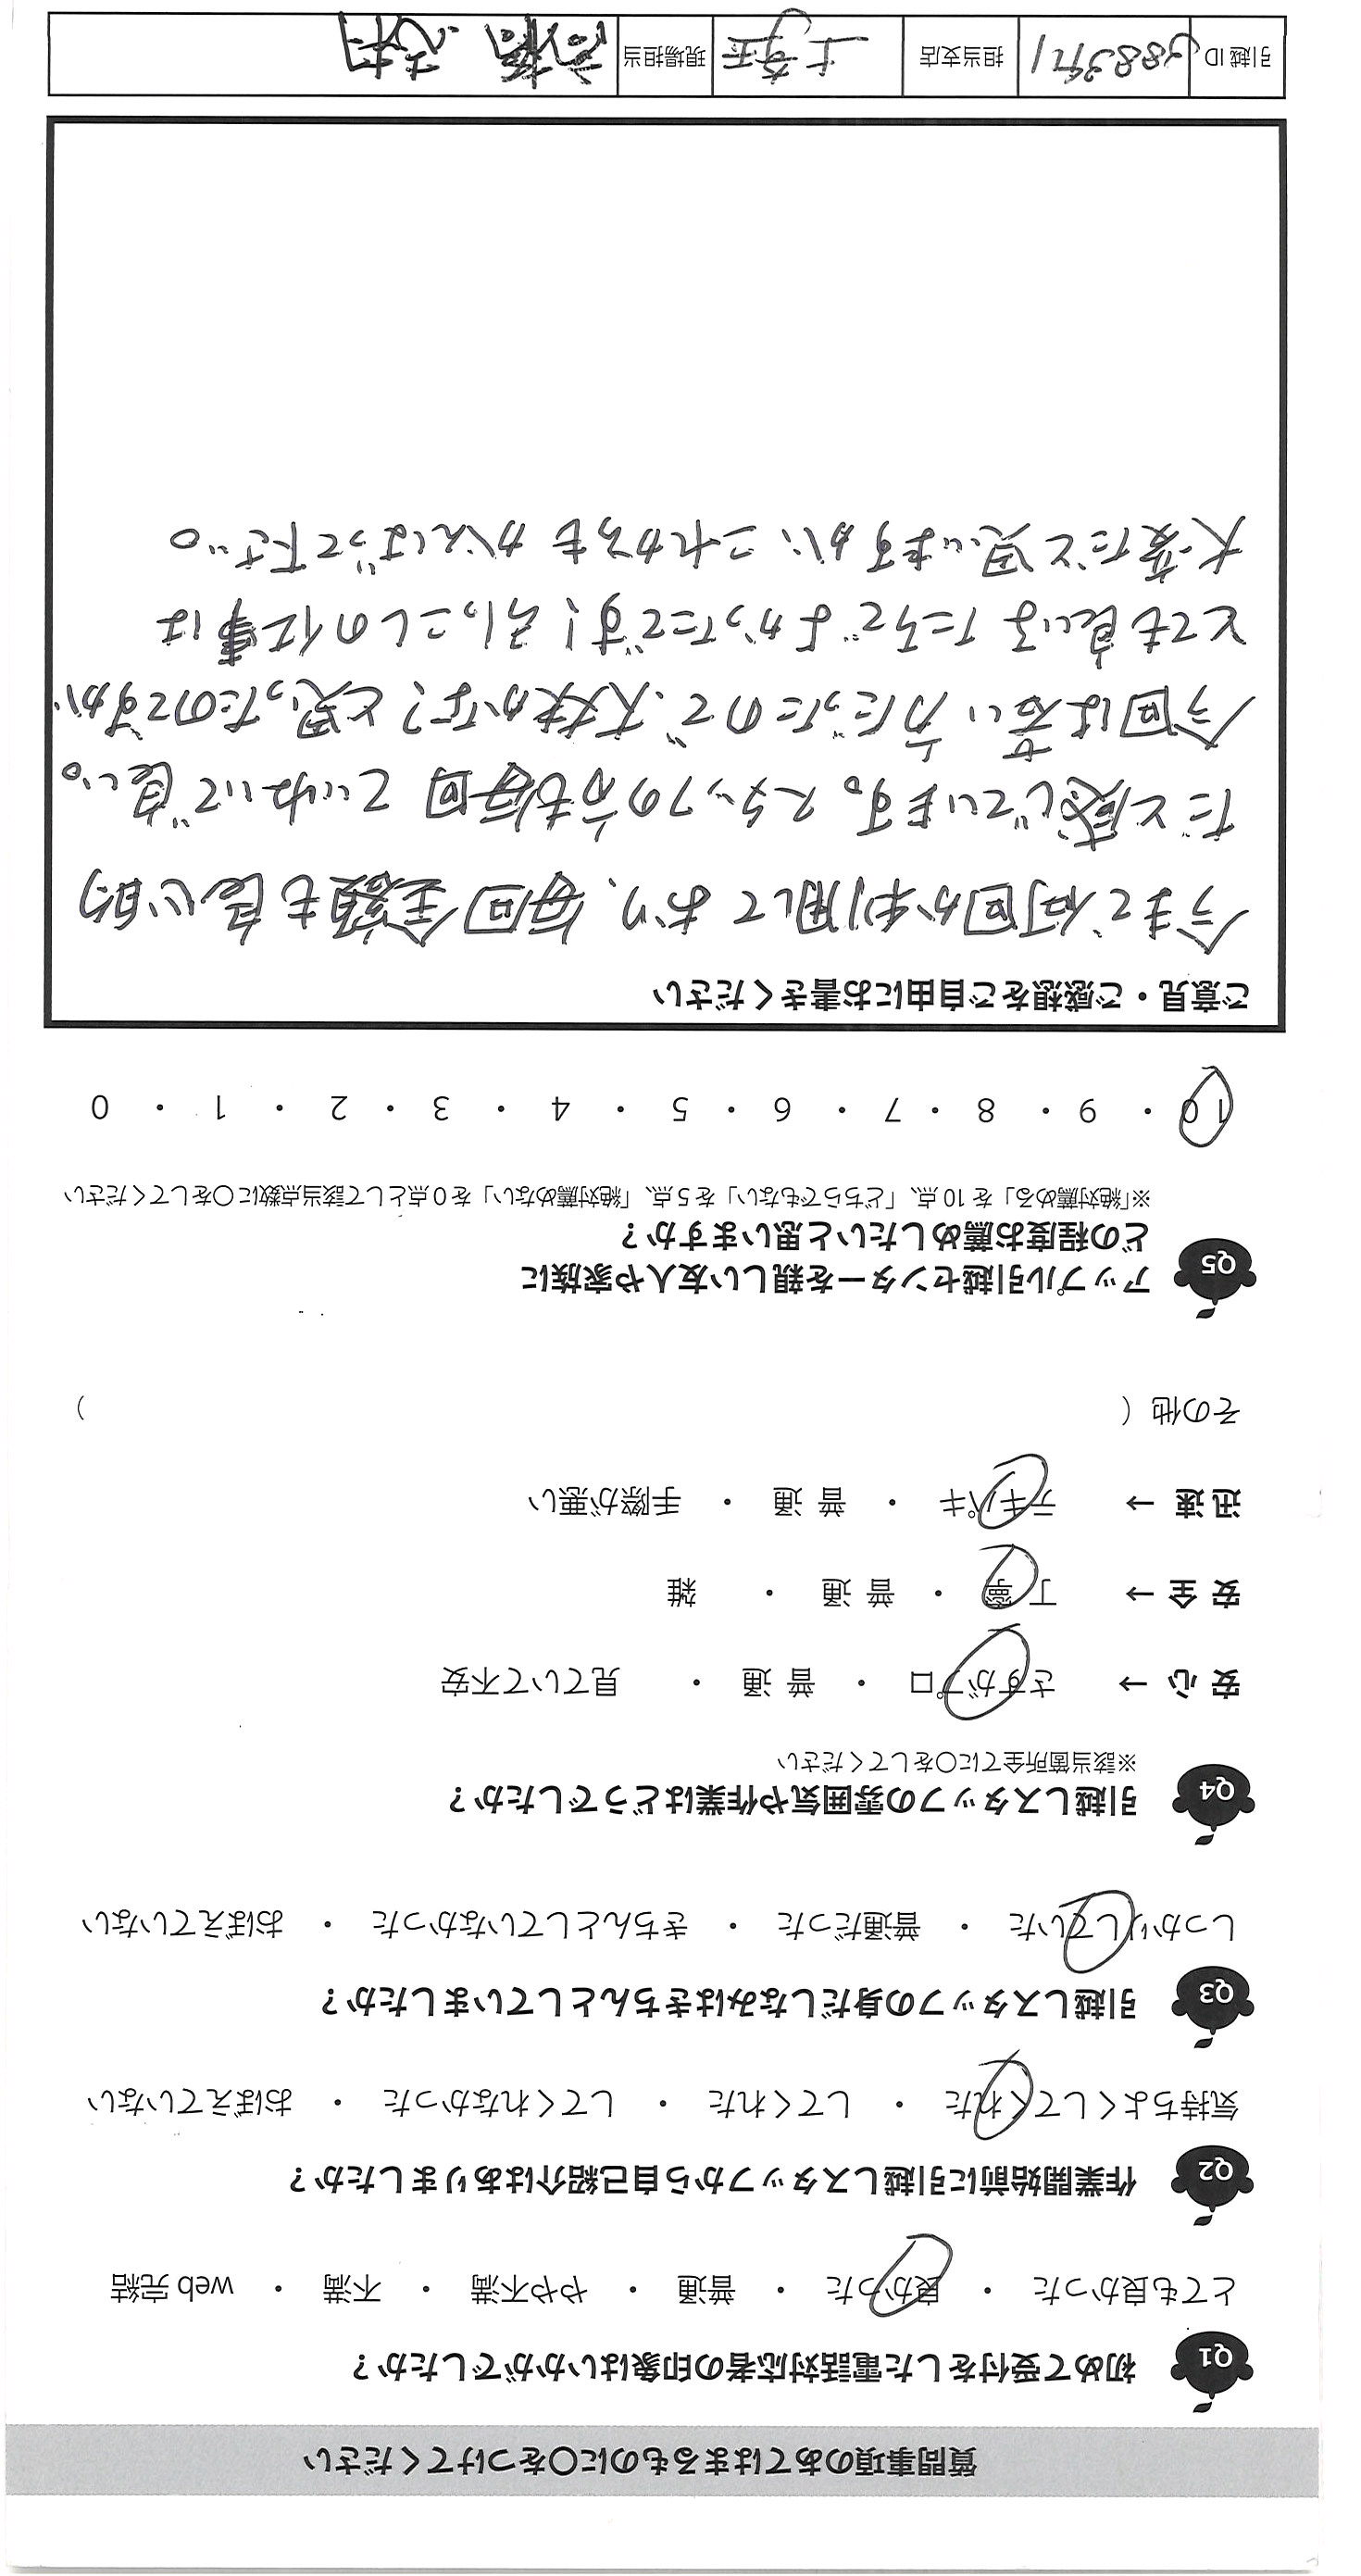 質問事項のあてはまるものに〇をつけてください
Q1 初めて受付をした電話対応者の印象はいかがでしたか？
とても良かった ・ 良かった ・ 普通 ・ やや不満 ・ 不満 ・ web 完結
Q2 作業開始前に引越しスタッフから自己紹介はありましたか？
気持ちよくしてくれた ・ してくれた ・ してくれなかった ・ おぼえていない
Q3 引越しスタッフの身だしなみはきちんとしていましたか？
しっかりしていた ・ 普通だった ・ きちんとしていなかった ・ おぼえていない
Q4 引越しスタッフの雰囲気や作業はどうでしたか？
※該当箇所全てに〇をしてください
安心 → さすがプロ ・ 普通 ・ 見ていて不安
安全 → 丁寧 ・ 普通 ・ 雑
迅速 → テキパキ ・ 普通 ・ 手際が悪い
その他（ ）
Q5 アップル引越センターを親しい友人や家族に
どの程度お薦めしたいと思いますか？
※「絶対薦める」を 10 点、「どちらでもない」を 5 点、「絶対薦めない」を 0 点として該当点数に〇をしてください
10 ・ 9 ・ 8 ・ 7 ・ 6 ・ 5 ・ 4 ・ 3 ・ 2 ・ 1 ・ 0
ご意見・ご感想をご自由にお書きください
今まで何回か利用しており、毎回金額も良心的
だと感じています。スタッフの方も毎回ていねいで良い。
今回は若い方だったので、大丈夫かな？と思ったのですが
とても良い方たちでよかったです！引っこしの仕事は
大変だと思いますが、これからもがんばって下さい。
引越 ID 担当支店 埼玉 現場担当 高橋